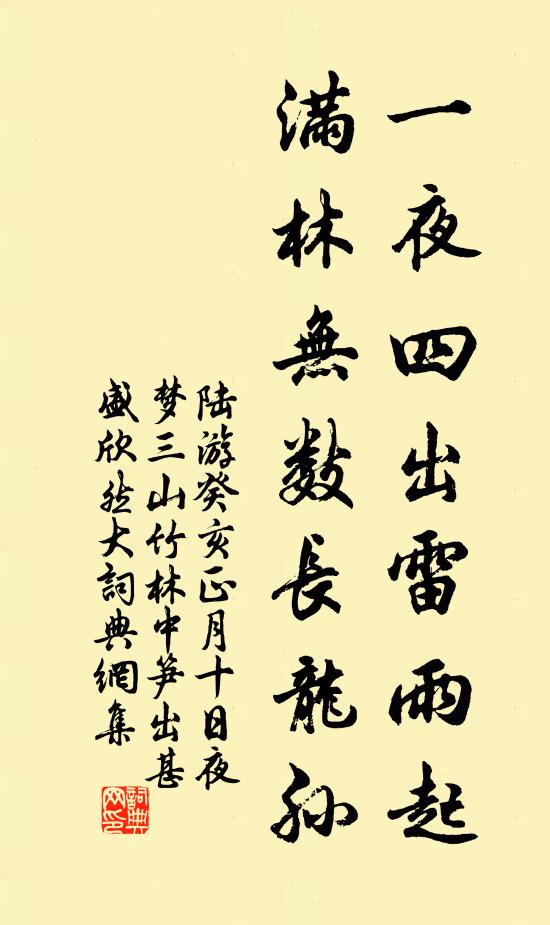 一夜四出雷雨起
满林無数長龍孙
陆游癸亥正月十日夜
梦三山竹林中笋出甚
盛欣然大詞典網集
詞典
网印